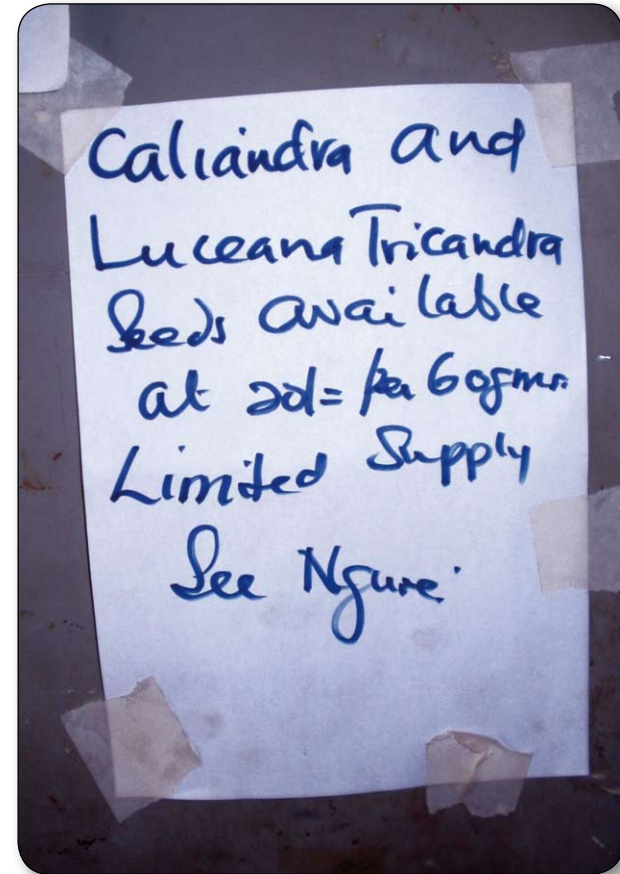 Caliandra and
Luceana Tricandra
Seeds available
at 20/= per 60gms.
Limited Supply
See Ngure